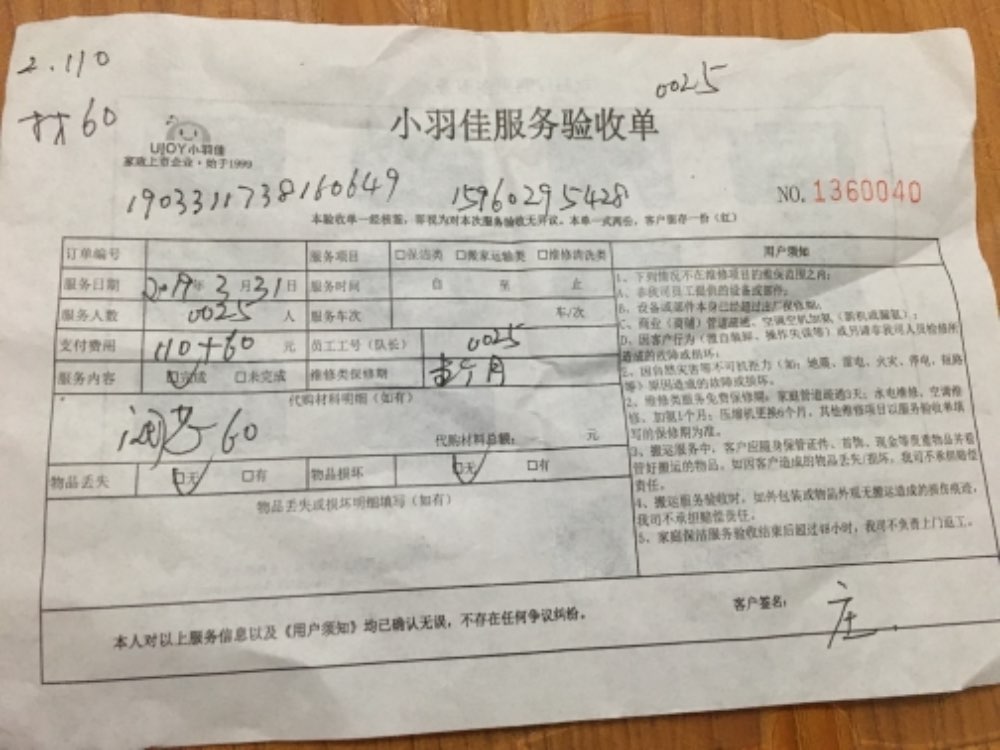 2.110
0025
材60
小羽佳服务验收单
UJOY小羽佳
家政上市企业·始于1999
1903311738160649
15960295428
NO.1360040
本验收单一经核签，即视为对本次服务验收无异议。本单一式两份，客户留存一份（红）
订单编号 服务项目 □保洁类 □搬家运输类 □维修清洗类
服务日期 2019年3月31日 服务时间 自 至 止
服务人数 0025 人 服务车次 车/次
支付费用 110+60 元 员工工号（队长） 0025
服务内容 □完成 □未完成 维修类保修期 个月
代购材料明细（如有）
60
代购材料总额： 元
物品丢失 □无 □有 物品损坏 □无 □有
物品丢失或损坏明细填写（如有）
用户须知
1、下列情况不在维修项目的维保范围之内：
A、非我司员工提供的设备或部件；
B、设备或部件本身已经超过主厂保修期；
C、商业（商铺）管道疏通、空调空机加氨（新机或漏氨）；
D、因客户行为（擅自装卸、操作失误等）或另请非我司人员检修所
造成的故障或损坏；
E、因自然灾害等不可机拒力（如：地震、雷电、火灾、停电、短路
等）原因造成的故障或损坏。
2、维修类服务免费保修期：家庭管道疏通3天；水电维修、空调维
修、加氨1个月；压缩机更换6个月，其他维修项目以服务验收单填
写的保修期为准。
3、搬运服务中，客户应随身保管证件、首饰、现金等贵重物品并看
管好搬运的物品。如因客户造成的物品丢失/损坏，我司不承担赔偿
责任。
4、搬运服务验收时，如外包装或物品外观无搬运造成的损伤痕迹，
我司不承担赔偿责任。
5、家庭保洁服务验收结束后超过48小时，我司不负责上门返工。
本人对以上服务信息以及《用户须知》均已确认无误，不存在任何争议纠纷。
客户签名： 庄